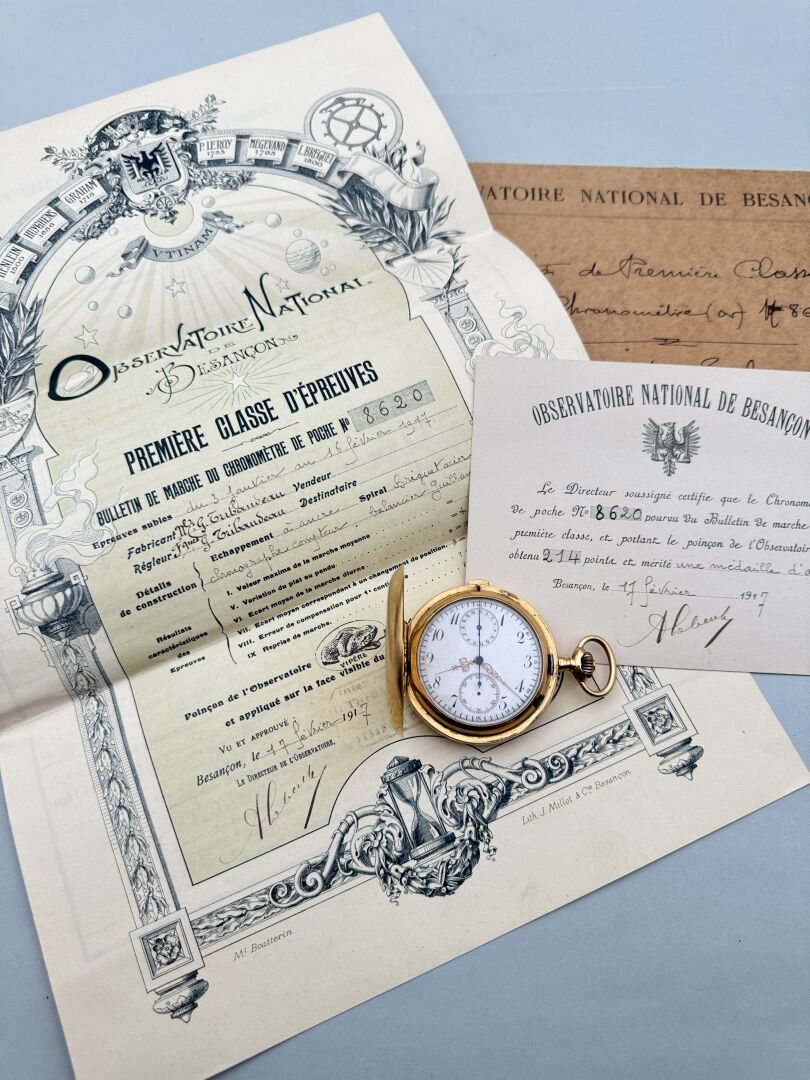 HUYGHENS 1656
GRAHAM 1716
P. LEROY 1753
MÉGEVAND 1793
L. BRÉGUET 1800
VTINAM
OBSERVATOIRE NATIONAL
DE
BESANÇON
PREMIÈRE CLASSE D'ÉPREUVES
BULLETIN DE MARCHE DU CHRONOMÈTRE DE POCHE Nº 8620
Epreuves subies du 3 janvier au 16 février 1917
Fabricant Mr G. Tribaudeau Vendeur
Régleur Fque G. Tribaudeau Destinataire
Détails de construction
Echappement à ancre Spiral Breguet acier
chronographe compteur, balancier Guillau
Résultats caractéristiques des Epreuves
I. Valeur maxima de la marche moyenne
V. Variation du plat au pendu
VI. Ecart moyen de la marche diurne
VII. Ecart moyen correspondant à un changement de position.
VIII. Erreur de compensation pour 1º centigr
IX Reprise de marche.
VIPÈRE
Poinçon de l'Observatoire
et appliqué sur la face visible du
VU ET APPROUVÉ
Besançon, le 17 février 1917
LE DIRECTEUR DE L'OBSERVATOIRE,
Mce Boutterin
Lith. J. Millot & Cie Besançon
VATOIRE NATIONAL DE BESANÇ
de Première Class
Chronomètre (or) Nº 86
OBSERVATOIRE NATIONAL DE BESANÇON
Le Directeur soussigné certifie que le Chronom
de poche Nº 8620 pourvu du Bulletin de marche
première classe, et portant le poinçon de l'Observatoir
obtenu 214 points et mérité une médaille d'o
Besançon, le 17 février 1917